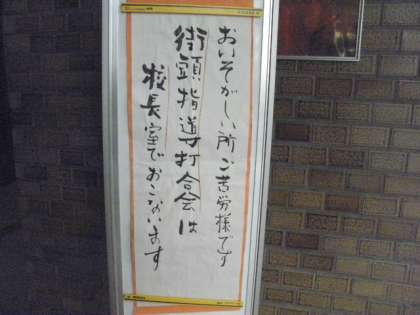 おいそがしい所ご苦労様です
街頭指導打合会は
校長室でおこないます